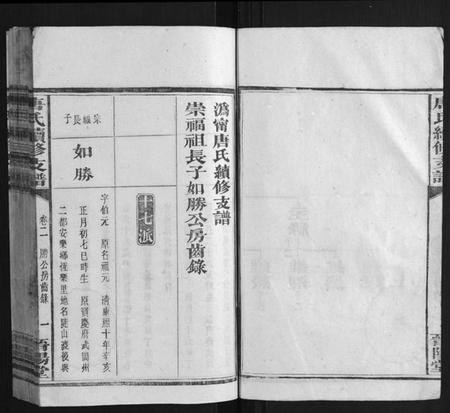 唐氏續修支譜
溈甯唐氏續修支譜
崇福祖長子如勝公房齒錄
十七派
崇福長子
如勝
字伯元 原名祖元 清康熙十年辛亥
正月初七巳時生 原寶慶府武岡州
二都安樂鄉恆樂里地名
唐氏續修支譜
卷二 勝公房齒錄 一
晉陽堂